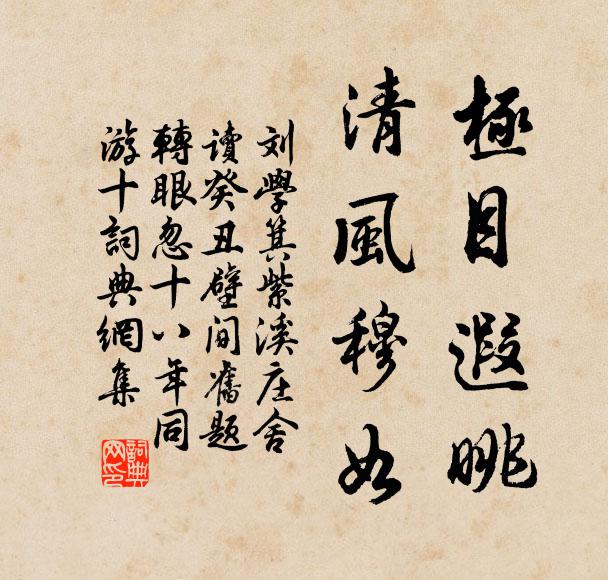 極目遐眺
清風穆如
刘學箕紫溪庄舍
讀癸丑壁间舊题
轉眼忽十八年同
游十詞典網集
詞典
网印